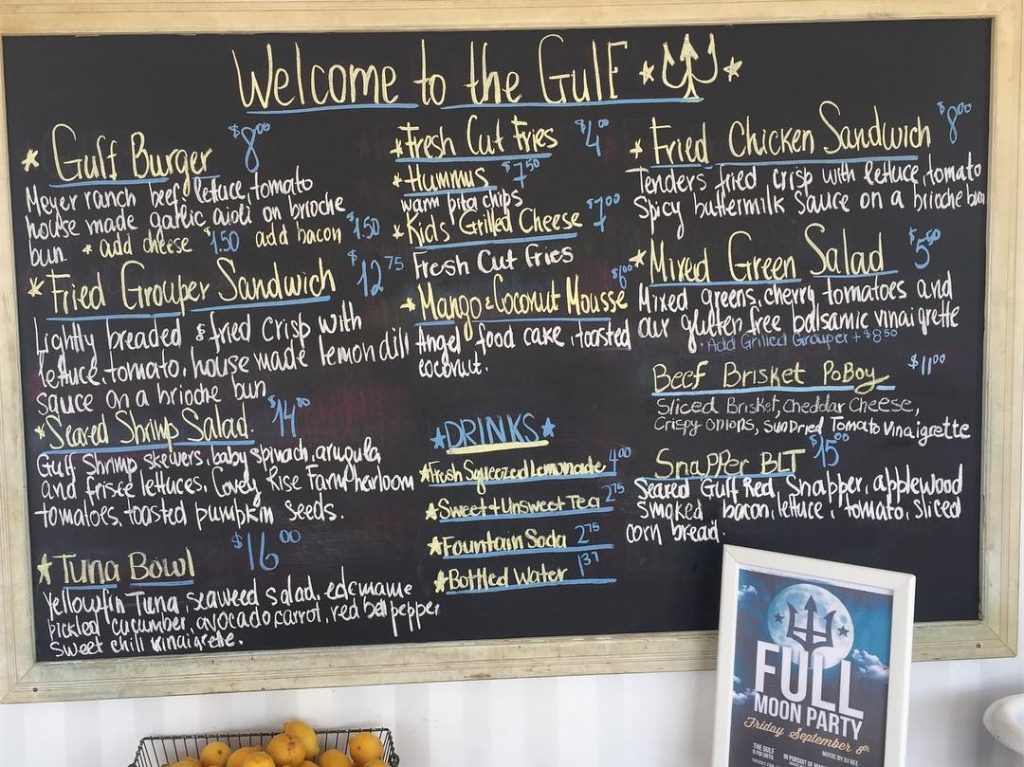 Welcome to the Gulf
Gulf Burger $8.00
Meyer ranch beef, lettuce, tomato
house made garlic aioli on brioche
bun * add cheese $1.50 add bacon $1.50
Fried Grouper Sandwich $12.75
Lightly breaded & fried crisp with
lettuce, tomato, house made lemon dill
sauce on a brioche bun
Seared Shrimp Salad $14.00
Gulf Shrimp skewers, baby spinach, arugula
and frisée lettuces, Covey Rise Farm heirloom
tomatoes, toasted pumpkin seeds.
Tuna Bowl $16.00
Yellowfin Tuna, seaweed salad, edamame
pickled cucumber, avocado, carrot, red bell pepper
sweet chili vinaigrette.
Fresh Cut Fries $4.00
Hummus $7.50
warm pita chips
Kid's Grilled Cheese $7.00
Fresh Cut Fries
Mango & Coconut Mousse $6.00
Angel food cake, toasted
coconut.
DRINKS
Fresh Squeezed Lemonade 4.00
Sweet + Unsweet Tea 2.75
Fountain Soda 2.75
Bottled Water 1.37
Fried Chicken Sandwich $8.00
Tenders fried crisp with lettuce, tomato
Spicy buttermilk sauce on a brioche bun
Mixed Green Salad $5.50
Mixed greens, cherry tomatoes and
our gluten free balsamic vinaigrette
• Add Grilled Grouper + $8.50
Beef Brisket PoBoy $11.00
Sliced Brisket, Cheddar Cheese,
Crispy Onions, SunDried Tomato Vinaigrette
Snapper BLT $15.00
Seared Gulf Red Snapper, applewood
smoked bacon, lettuce, tomato, sliced
corn bread.
FULL
MOON PARTY
Friday September 8th
THE GULF
MUSIC BY DJ